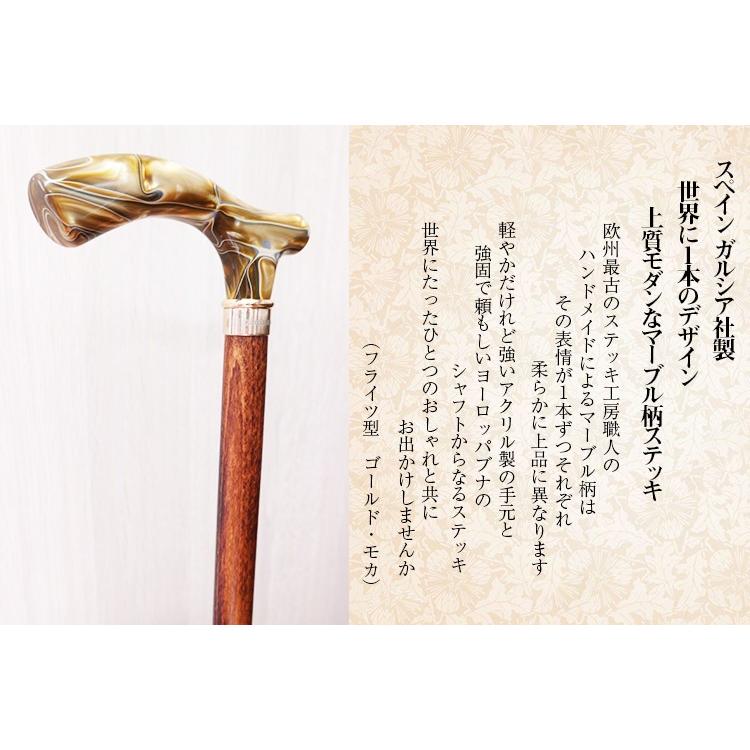 スペイン ガルシア社製
世界に1本のデザイン
上質モダンなマーブル柄ステッキ
欧州最古のステッキ工房職人の
ハンドメイドによるマーブル柄は
その表情が1本ずつそれぞれ
柔らかに上品に異なります
軽やかだけれど強いアクリル製の手元と
強固で頼もしいヨーロッパブナの
シャフトからなるステッキ
世界にたったひとつのおしゃれと共に
お出かけしませんか
（フライツ型　ゴールド・モカ）